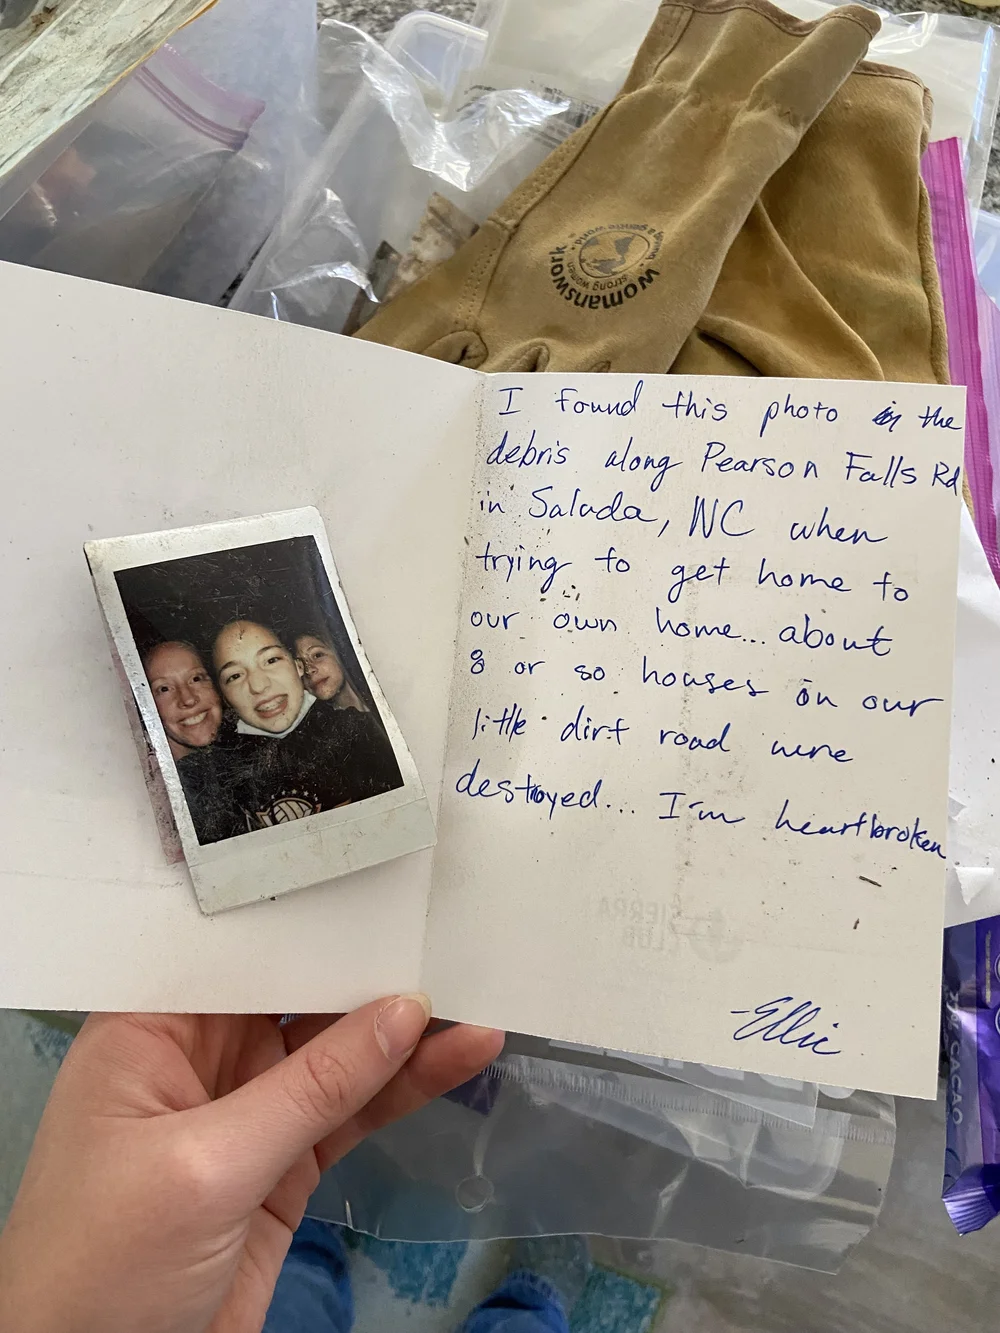 womanswork
strong women
a gentle world
I found this photo in the
debris along Pearson Falls Rd
in Saluda, NC when
trying to get home to
our own home... about
8 or so houses on our
little dirt road were
destroyed... I'm heartbroken
SIERRA
CLUB
-Ellie
CACAO